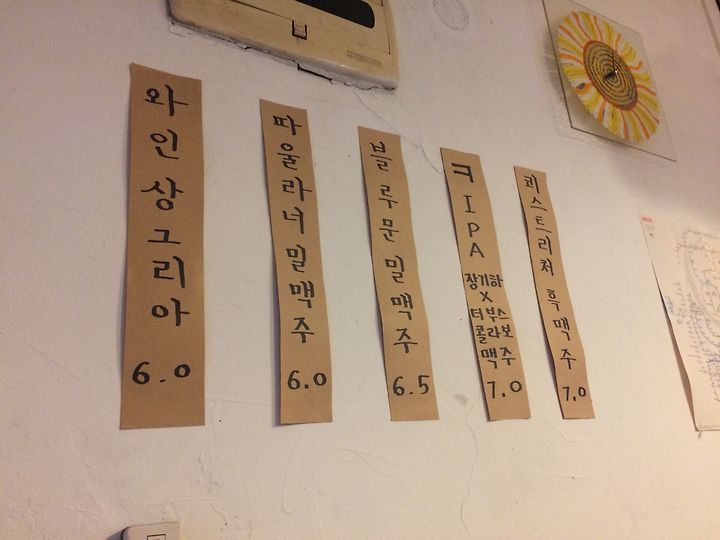 와인 상그리아
6.0
파울라너 밀맥주
6.0
블루문 밀맥주
6.5
ㅋ IPA
장기하
X
더부스
콜라보
맥주
7.0
쾨스트리쳐 흑맥주
7.0